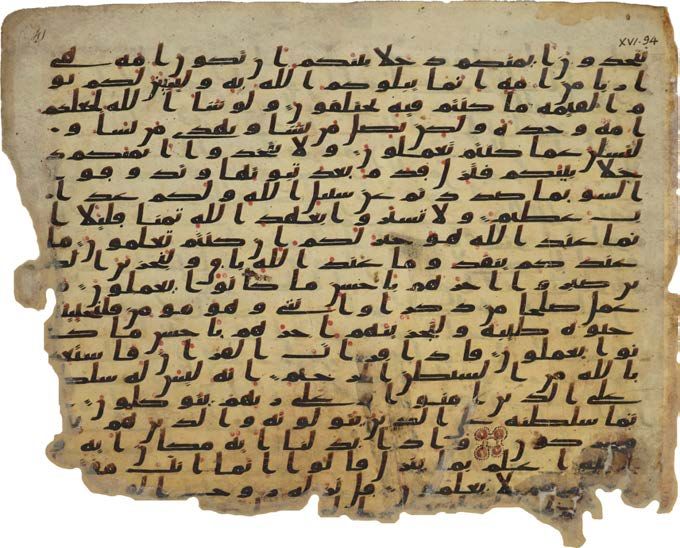 41 XVI.94
تتخذون ايمنكم دخلا بينكم ان تكون امه هى
اربى من امه انما يبلوكم الله به وليبينن لكم يو
م القيمه ما كنتم فيه تختلفون ولو شا الله لجعلكم
امه وحده ولكن يضل من يشا ويهدى من يشا و
لتسلن عما كنتم تعملون ولا تتخذوا ايمنكم د
خلا بينكم فتزل قدم بعد ثبوتها وتذوقوا
السو بما صددتم عن سبيل الله ولكم عذا
ب عظيم ولا تشتروا بعهد الله ثمنا قليلا ا
نما عند الله هو خير لكم ان كنتم تعلمون ما
عندكم ينفد وما عند الله باق ولنجزين الذ
ين صبروا اجرهم باحسن ما كانوا يعملون
عمل صلحا من ذكر او انثى وهو مومن فلنحيينه
حيوه طيبه ولنجزينهم اجرهم باحسن ما كا
نوا يعملون فاذا قرات القران فاستعذ
بالله من الشيطن الرجيم انه ليس له سلطن
على الذين امنوا وعلى ربهم يتوكلون ا
نما سلطنه على الذين يتولونه والذين هم
مشركون واذا بدلنا ايه مكان ايه
اعلم بما ينزل قالوا انما انت
لا يعلمون قل نزله روح